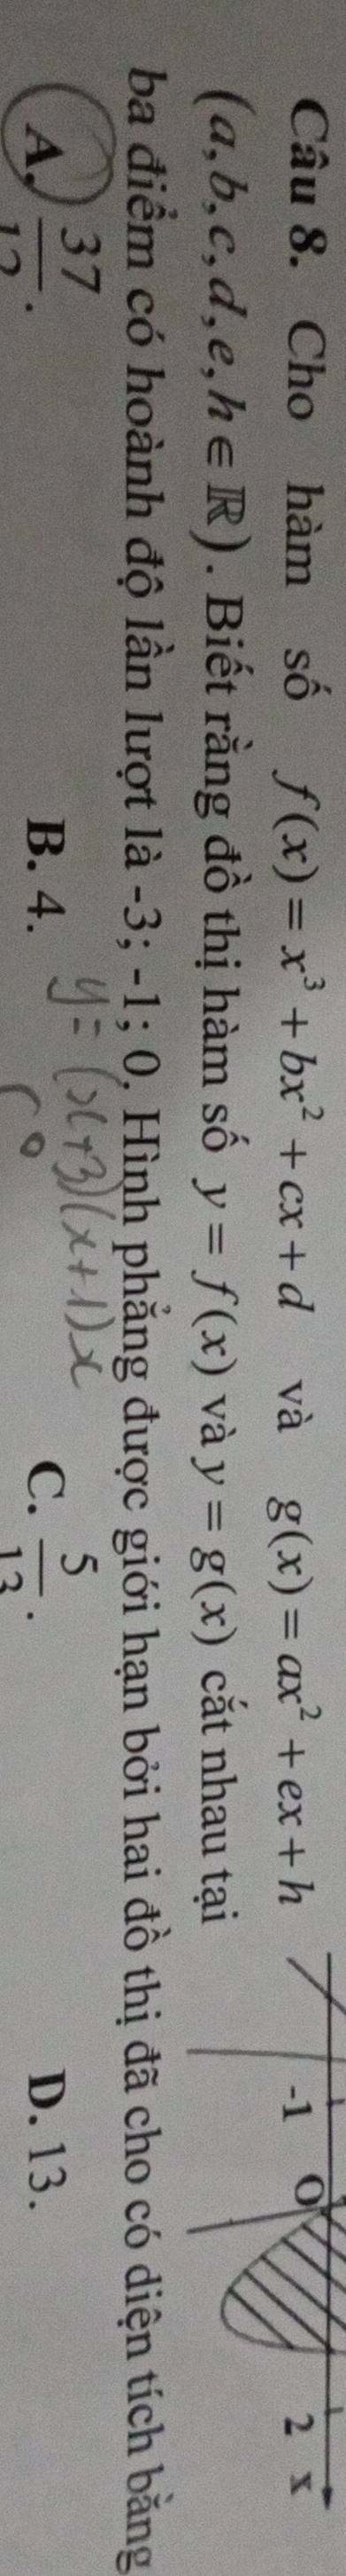 -1 O 2 x
Câu 8. Cho hàm số f(x) = x³ + bx² + cx + d và g(x) = ax² + ex + h
(a,b,c,d,e,h ∈ ℝ). Biết rằng đồ thị hàm số y = f(x) và y = g(x) cắt nhau tại
ba điểm có hoành độ lần lượt là -3; -1; 0. Hình phẳng được giới hạn bởi hai đồ thị đã cho có diện tích bằng
y = (x+3)(x+1)x
A. 37/12. B. 4. C. 5/13. D. 13.